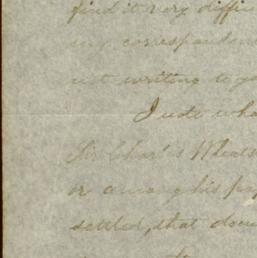 find it very diffi
my corresponden
not writing to yo
I note wha
Sir Char's Wheats
or among his pap
settled, that docu